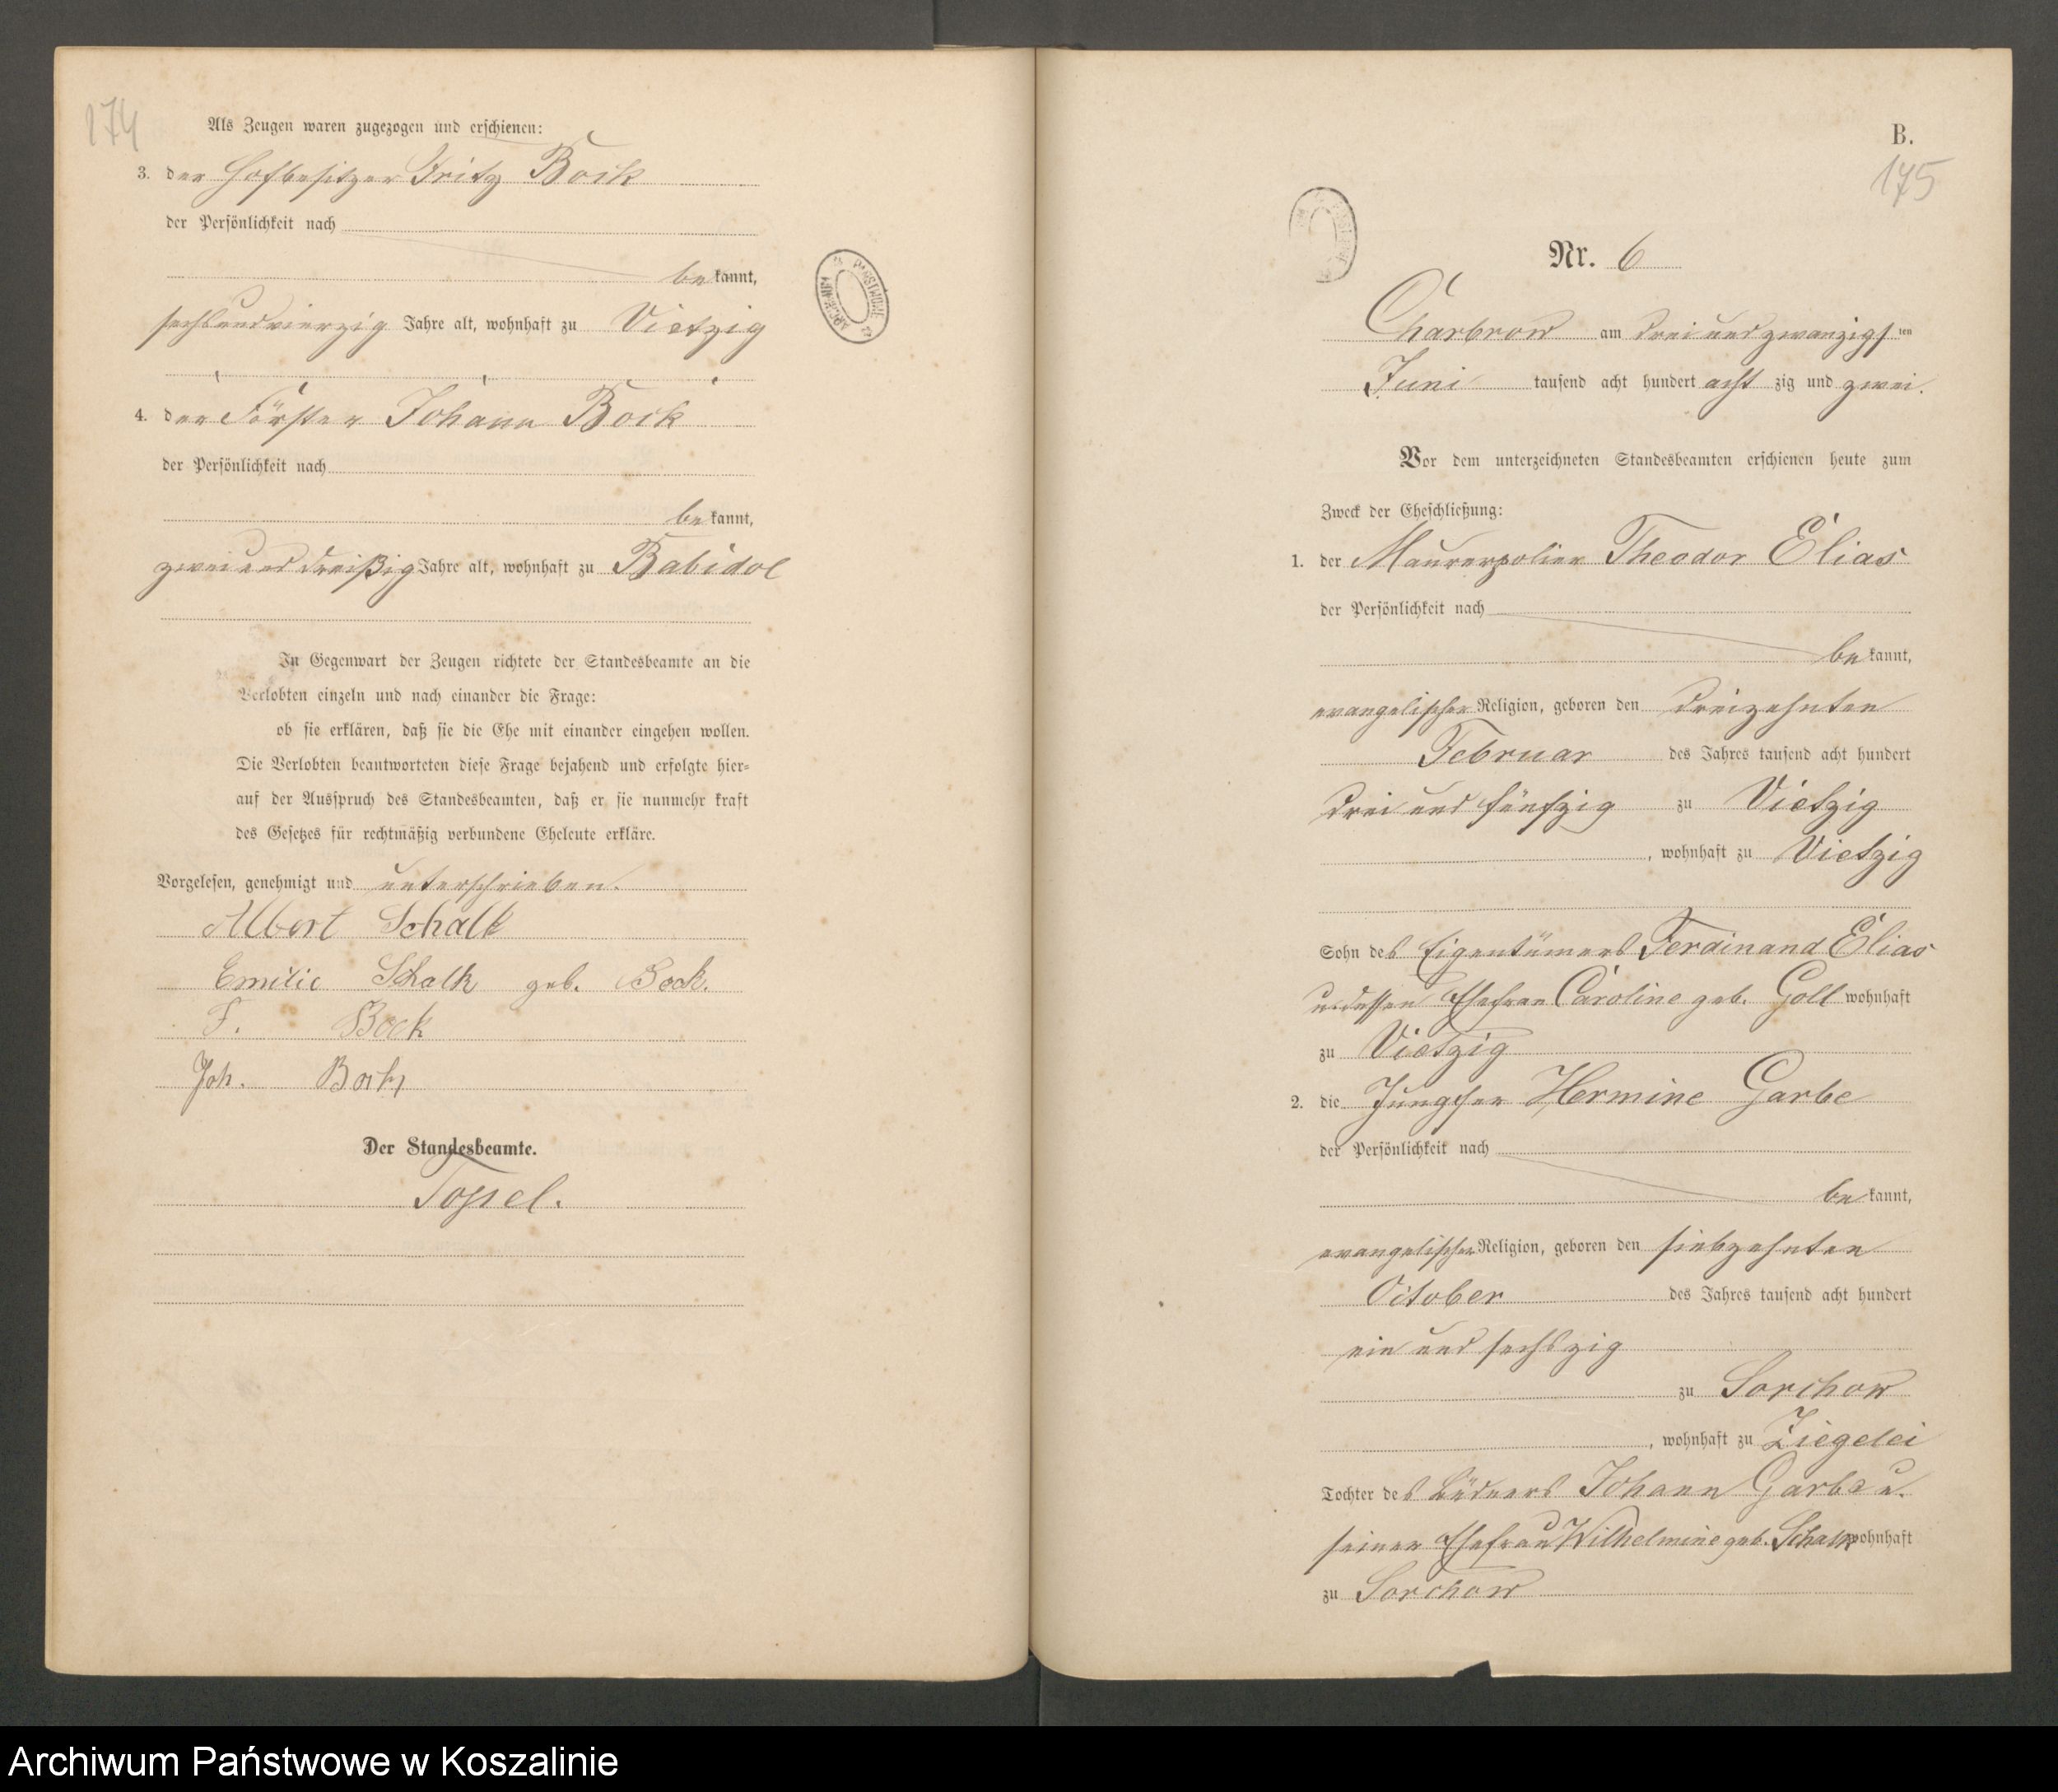 174
Als Zeugen waren zugezogen und erschienen:
3. der Hofbesitzer Fritz Bock
der Persönlichkeit nach
bekannt,
sechsundvierzig Jahre alt, wohnhaft zu Vietzig
4. der Förster Johann Bock
der Persönlichkeit nach
bekannt,
zweiunddreißig Jahre alt, wohnhaft zu Babidol
In Gegenwart der Zeugen richtete der Standesbeamte an die
Verlobten einzeln und nach einander die Frage:
ob sie erklären, daß sie die Ehe mit einander eingehen wollen.
Die Verlobten beantworteten diese Frage bejahend und erfolgte hier=
auf der Ausspruch des Standesbeamten, daß er sie nunmehr kraft
des Gesetzes für rechtmäßig verbundene Eheleute erkläre.
Vorgelesen, genehmigt und unterschrieben.
Albert Schalk
Emilie Schalk geb. Bock.
F. Bock
Joh. Bock
Der Standesbeamte.
Topel.
B.
175
Nr. 6
Charbrow am dreiundzwanzigsten
Juni tausend acht hundert achtzig und zwei.
Vor dem unterzeichneten Standesbeamten erschienen heute zum
Zweck der Eheschließung:
1. der Maurerpolier Theodor Elias
der Persönlichkeit nach
bekannt,
evangelischer Religion, geboren den dreizehnten
Februar des Jahres tausend acht hundert
drei und fünfzig zu Vietzig
, wohnhaft zu Vietzig
Sohn des Eigentümers Ferdinand Elias
u. dessen Ehefrau Caroline geb. Goll wohnhaft
zu Vietzig
2. die Jungfer Hermine Garbe
der Persönlichkeit nach
bekannt,
evangelischer Religion, geboren den siebzehnten
October des Jahres tausend acht hundert
ein und sechszig
zu Sarchow
, wohnhaft zu Ziegelei
Tochter des Büdners Johann Garbe u.
seiner Ehefrau Wilhelmine geb. Schalk wohnhaft
zu Sarchow
Archiwum Państwowe w Koszalinie